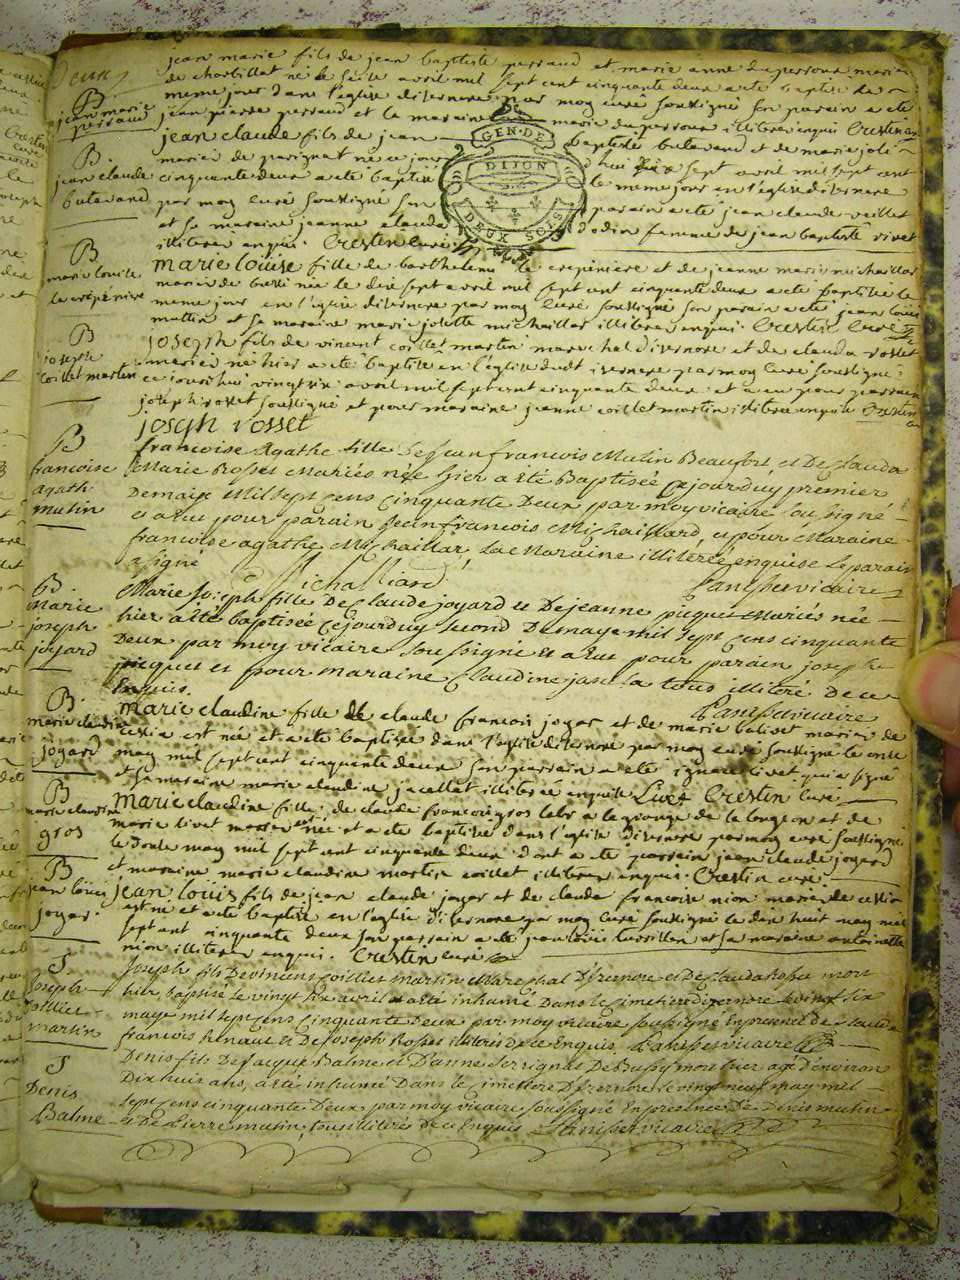 Deux
jean marie fils de jean baptiste perraud et marie anne duperroux mariés
de charbillat né le seise avril mil sept cent cinquante deux a ete baptisé le
B
jean marie
perraud
meme jour dans l'eglise disernore par moy curé soussigné son parain a ete
jean pierre perraud et la maraine marie duperroux illiteres enquis Crestin curé
GEN. DE
DIJON
DEUX SOLS
B
jean claude
butavand
jean claude fils de jean baptiste butavand et de marie joli
mariés de perignat né ce jourd'hui dix sept avril mil sept cent
cinquante deux a ete baptisé le meme jour en l'eglise disernore
par moy curé soussigné son parain a ete jean claude veillet
et sa maraine jeanne claude dodin femme de jean baptiste rivet
illiteres enquis. Crestin curé
B
marie louise
le crepiniere
marie louise fille de barthelemi le crepiniere et de jeanne marie michaillar
mariés de née le dix sept avril mil sept cent cinquante deux a ete baptisée le
meme jour en l'eglise disernore par moy curé soussigné son parain a ete jean louis
mutin et sa maraine marie josette michaillar illiteres enquis. Crestin curé
B
joseph
coillet martin
joseph fils de vincent coillet martin marechal disernore et de clauda rosset
mariés né hier a ete baptisé en l'eglise dudt isernore par moy curé soussigné
ce jourdhui vingt six avril mil sept cent cinquante deux et a eu pour parrain
joseph rosset soussigné et pour maraine jeanne coillet martin illiterée enquise Crestin
joseph rosset
B
francoise
agath
mutin
francoise Agathe fille de Jean francois Mutin Beaufort et De Clauda
Marie Rosset Mariés née hier a été Baptisée Cejourduy premier
Demaye Mil sept cens cinquante Deux par moy vicaire sousigné
et a eu pour parain Jean francois Michaillard, et pour Maraine
francoise agathe Michaillar, La Maraine illiterée enquise Le parain
a signé Michalliard Lanssevicaire
B
Marie
joseph
joyard
Marie Joseph fille De Claude joyard et De jeanne picquet Mariés née
hier a été baptisée Cejourduy second Demaye mil sept cens cinquante
Deux par moy vicaire soussigné et a eu pour parain joseph
picquet et pour maraine Claudine jantet tous illiteré De ce
Enquis. Lanssevicaire
B
marie claudine
joyard
marie claudine fille de claude francois joyar et de marie baliset mariés de
cessia est née et a ete baptisée dans l'eglise disernore par moy curé soussigné le onse
may mil sept cent cinquante deux son parrain a ete ignace livet qui a signé
et sa maraine marie claudine jacollat illiterée enquise Livet Crestin curé
B
marie claudine
gros
marie claudine fille de claude francois gros labr a la grange de la longeon et de
marie livet mariés née et a ete baptisée dans l'eglise disernore par moy curé soussigné
le douse may mil sept cent cinquante deux dont a ete parrain jean claude joyard
et maraine marie claudine martin coillet illiteres enquis. Crestin curé
B
jean louis
joyar
jean louis fils de jean claude joyar et de claude francoise nion mariés de cessia
est né et a ete baptisé en l'eglise disernore par moy curé soussigné le dix huit may mil
sept cent cinquante deux son parrain a ete jean louis tursillon et sa maraine antoinette
nion illiteres enquis. Crestin curé
S
Joseph
Collier
martin
Joseph fils De vincens coillet martin Marechal D'isernore et De Clauda Rosset mort
hier baptisé Le vingt six avril a été inhumé Dans Le Cimetiere disernore Le vingt six
maye mil sept cens Cinquante Deux par moy vicaire soussigné En presence de Claude
francois Renaud et De joseph Rosset illiteres De ce Enquis. Lanssevicaire
S
Denis
Balme
Denis fils De Jacque Balme et D'anne Sorignat De Bussy mort hier agé D'environ
Dix huit ans, a été inhumé Dans Le Cimetiere D'isernore Le vingt neuf may mil
sept cens cinquante Deux par moy vicaire soussigné En presence De Denis mutin
et De Pierre mutin tous illiteres De ce Enquis Lanssevicaire